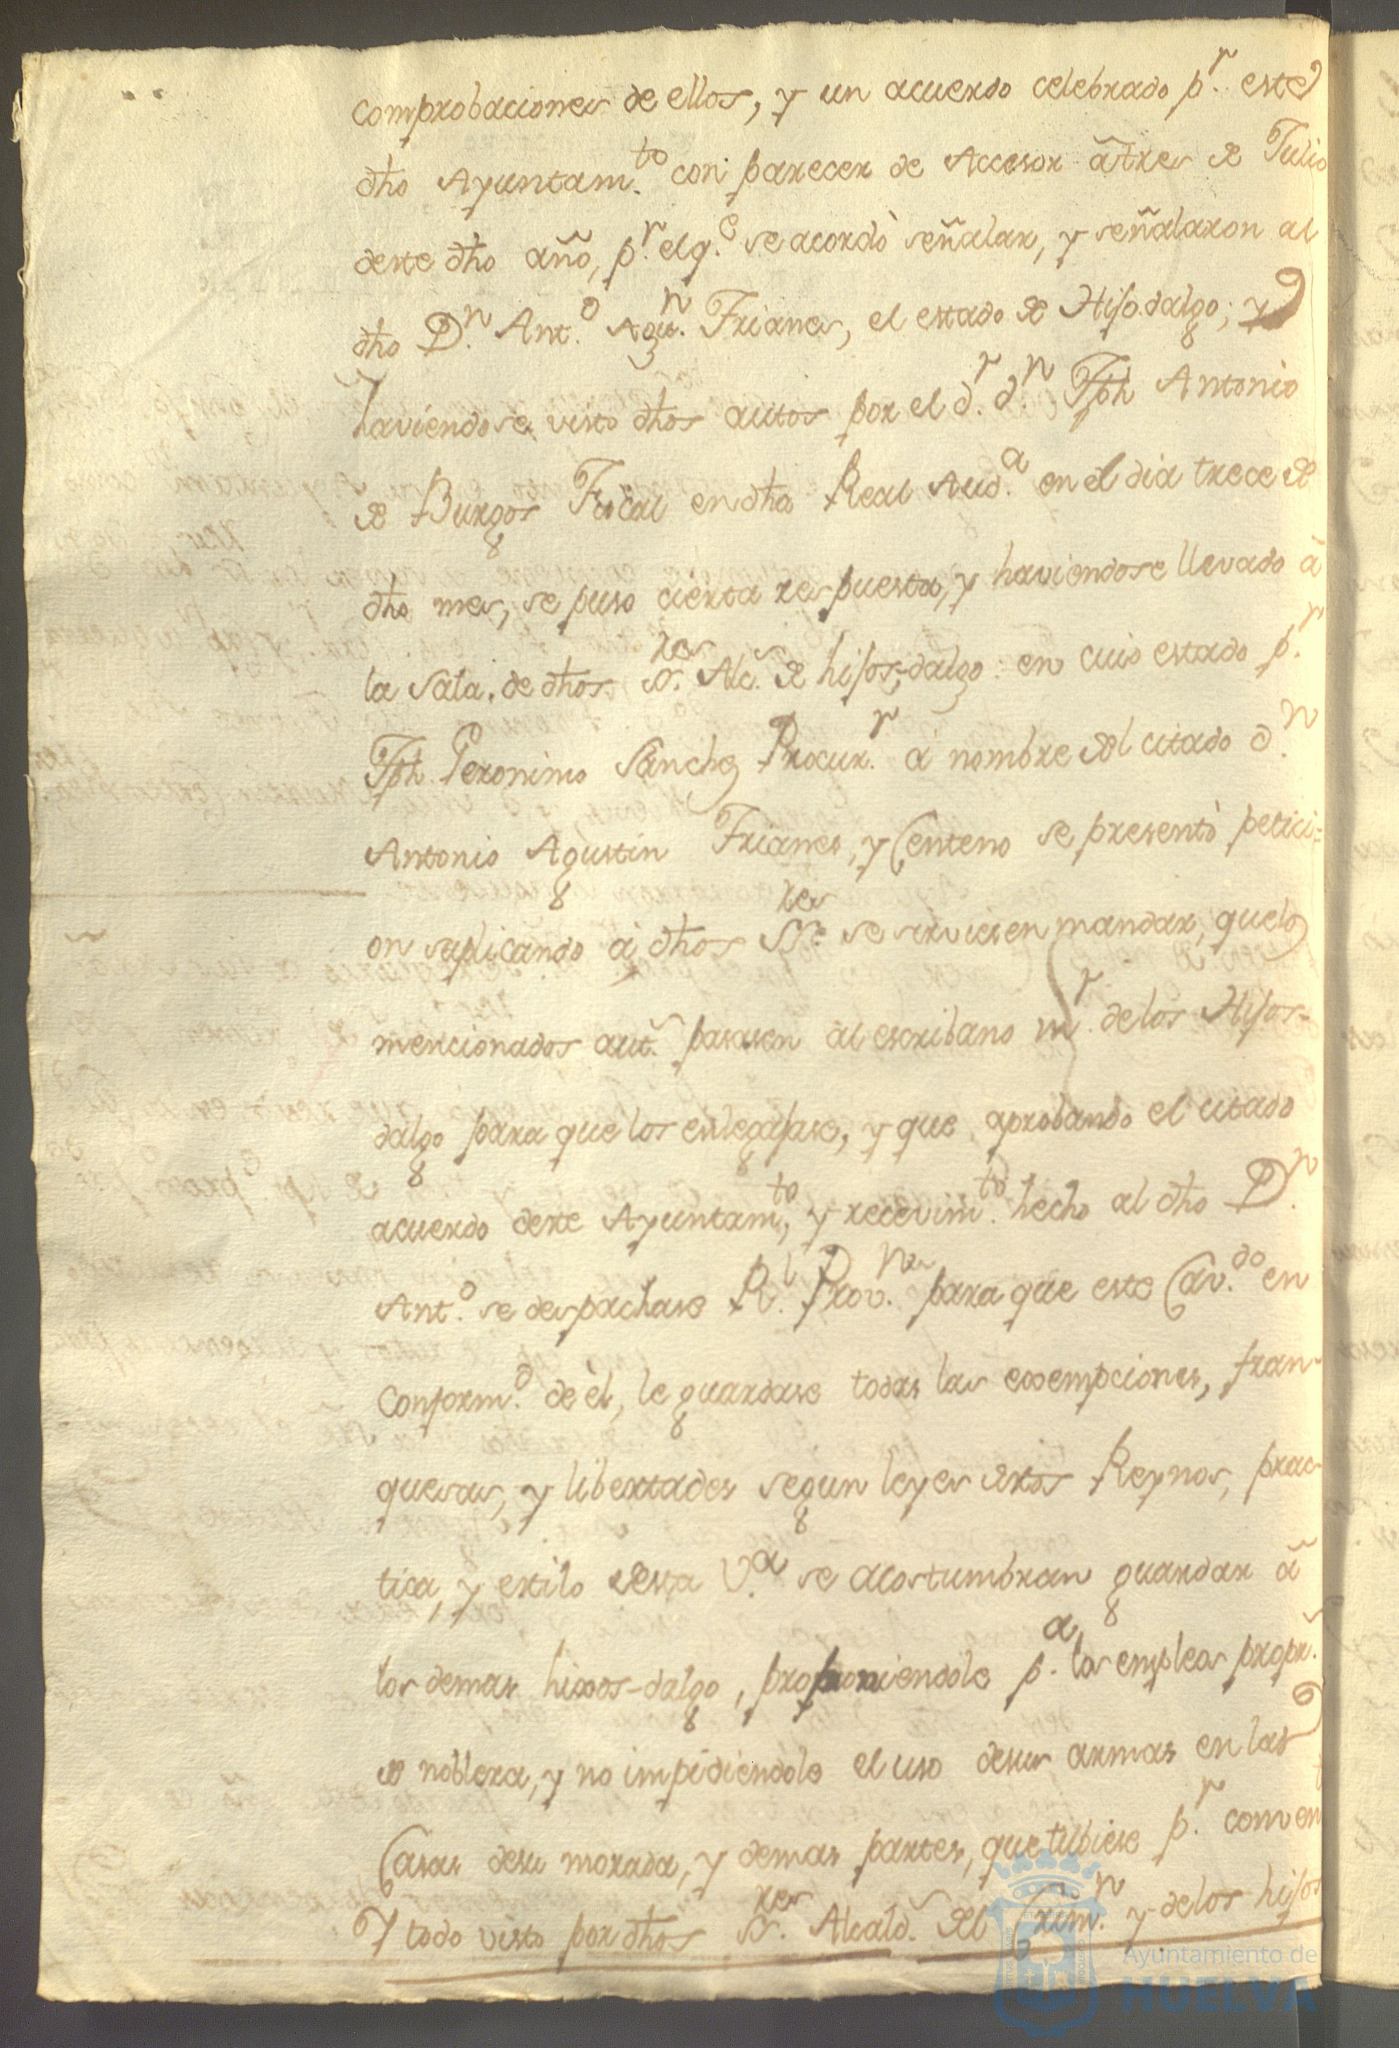 comprobaciones de ellos, y un acuerdo celebrado p.r este
dho Ayuntam.to con parecer de Accesor â tres de Julio
deste dho año, p.r el q.e se acordò señalar, y señalaron al
dho D.n Ant.o Agus.n Frianes, el estado de Hijodalgo; y
haviendose visto dhos autos por el d.r d.n Jph Antonio
de Burgos Fiscal en dha Real Aud.a en el dia trece de
dho mes, se puso cierta respuesta, y haviendose llevado â
la Sala de dhos S.res Alc.s de hijos-dalgo: en cuio estado p.r
Jph Geronimo Sanchez Procur.r a nombre del citado d.n
Antonio Agustin Frianes, y Centeno se presentò petici=
on suplicando a dhos SS.res se sirviesen mandar, que los
mencionados aut.s pasasen al escribano m.r de los Hijos-
dalgo para que los enlegajase, y que aprobando el citado
acuerdo deste Ayuntam.to, y recevim.to hecho al dho D.n
Ant.o se despachase R.l Prov.n para que este Cav.do en
conform.d de èl, le guardase todas las exempciones, fran
quesas, y libertades segun leyes destos Reynos, prac
tica, y estilo desta V.a se acostumbran guardar â
los demas hixos-dalgo, proponiendole p.a los empleos propr.s
de nobleza, y no impidiendole el uso desus armas en las
Casas desu morada, y demas partes, que tubiese p.r conven.t
Y todo visto por dhos S.res Alcald.s del Crim.n y de los hijos
Ayuntamiento de
HUELVA